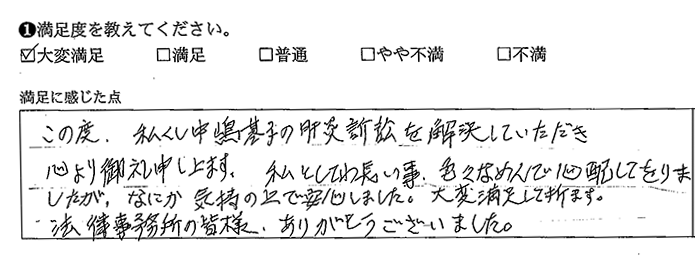 ❶満足度を教えてください。
☑大変満足 □満足 □普通 □やや不満 □不満
満足に感じた点
この度、私くし中嶋基子の肝炎訴訟を解決していただき
心より御礼申し上ます。私としてわ長い事、色々なめんで心配してをりま
したが、なにか気持の上で安心しました。大変満足して折ます。
法律事務所の皆様、ありがとうございました。